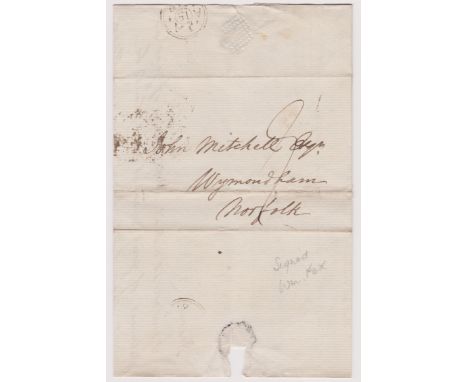 John Mitchell Esqr
Wymondham
Norfolk
Signed
Wm. Fox